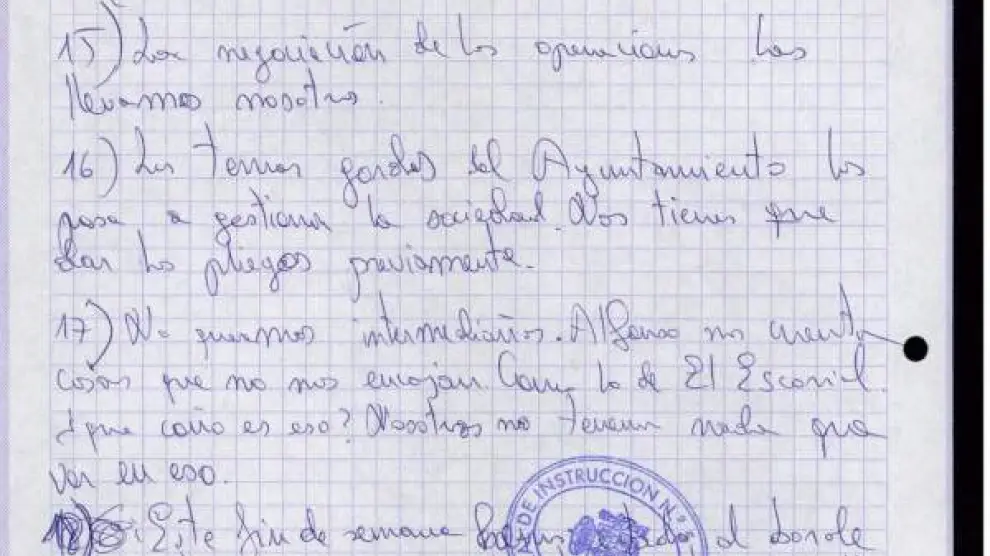 15) La negociación de las operaciones las
llevamos nosotros.
16) Los temas gordos del Ayuntamiento los
pasa a gestionar la sociedad. Nos tienen que
dar los pliegos previamente.
17) No queremos intermediarios. Alfonso nos cuenta
cosas que no nos encajan. Como lo de El Escorial.
¿que coño es eso? Nosotros no tenemos nada que
ver en eso.
Este fin de semana al
DE INSTRUCCION N.º